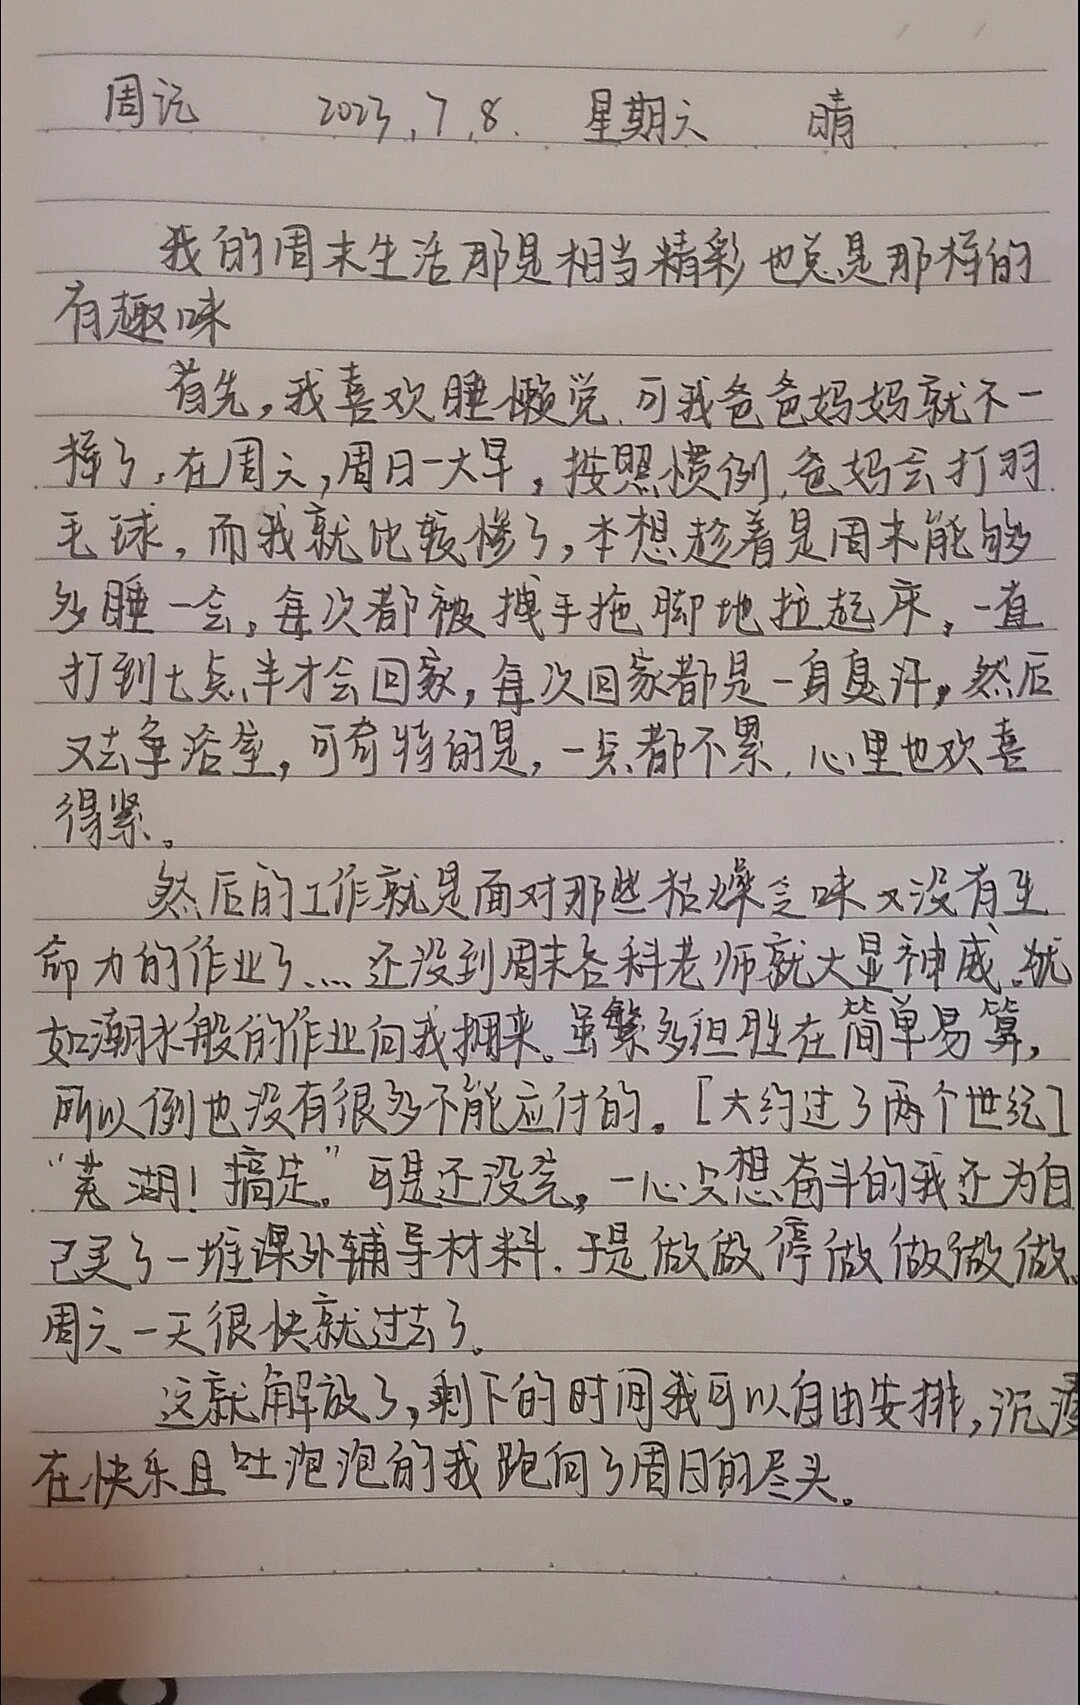 周记 2023.7.8. 星期六 晴
我的周末生活那是相当精彩也总是那样的
有趣味
首先,我喜欢睡懒觉.可我爸爸妈妈就不一
样了.在周六,周日一大早,按照惯例.爸妈会打羽
毛球,而我就比较惨了,本想趁着是周末能够
多睡一会,每次都被拽手拖脚地拉起床,一直
打到七点半才会回家,每次回家都是一身臭汗,然后
又去争浴室,可奇特的是,一点都不累.心里也欢喜
得紧。
然后的工作就是面对那些枯燥乏味又没有生
命力的作业了....还没到周末各科老师就大显神威.犹
如潮水般的作业向我拥来。虽繁多但胜在简单易算,
所以倒也没有很多不能应付的。[大约过了两个世纪]
“芜湖!搞定。”可是还没完,一心只想奋斗的我还为自
己买了一堆课外辅导材料.于是做做停做做做做。
周六一天很快就过去了。
这就解放了,剩下的时间我可以自由安排,沉浸
在快乐且吐泡泡的我跑向了周日的尽头。